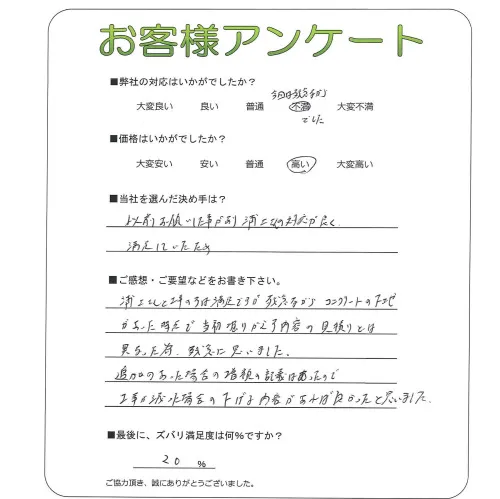 お客様アンケート
■弊社の対応はいかがでしたか？
今回は残念ながら
大変良い 良い 普通 不満 大変不満
でした
■価格はいかがでしたか？
大変安い 安い 普通 高い 大変高い
■当社を選んだ決め手は？
以前お願いした事があり 浦上さんの対応が良く
満足していたため
■ご感想・ご要望などをお書き下さい。
浦上さんと工事の方は満足ですが 残念ながら コンクリートの下地
があった時点で当初
内容の見積りとは
異なった為、残念に思いました。
追加のあった場合の増額の記載はあったので
工事が減った場合の下げる内容があれば良かったと思いました。
■最後に、ズバリ満足度は何％ですか？
20 ％
ご協力頂き、誠にありがとうございました。